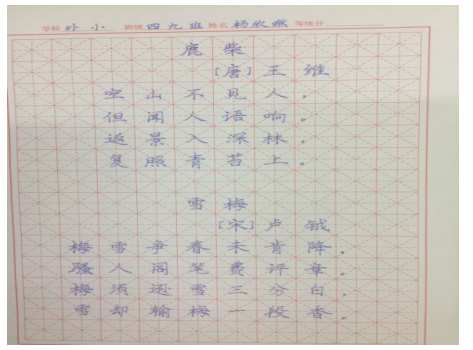 学校 外小 班级 四九班 姓名 杨欣燃 等级分
鹿柴
[唐]王维
空山不见人，
但闻人语响。
返景入深林，
复照青苔上。
雪梅
[宋]卢钺
梅雪争春未肯降。
骚人阁笔费评章。
梅须逊雪三分白，
雪却输梅一段香。